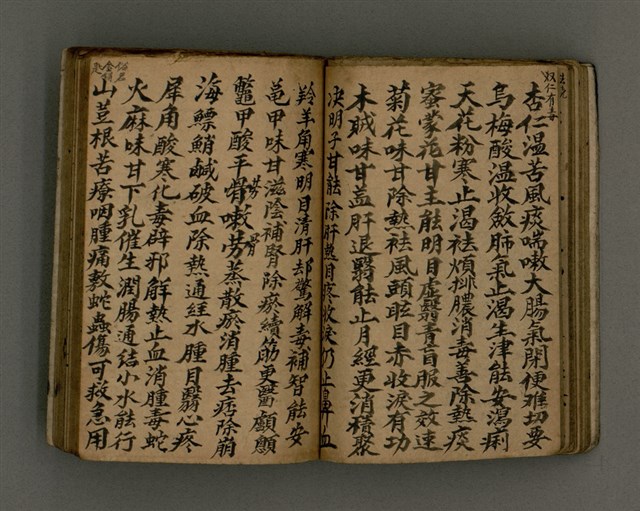 去皮
双仁有毒
杏仁温苦風痰喘嗽大腸氣閉便难切要
烏梅酸温收斂肺氣止渴生津能安瀉痢
天花粉寒止渴祛煩排膿消毒善除熱痰
蜜蒙花甘主能明目虛翳青盲服之效速
菊花味甘除熱祛風頭眩目赤收淚有功
木賊味甘益肝退翳能止月經更消積聚
决明子甘能除肝熱目疼收淚仍止鼻血
羚羊角寒明目清肝却驚解毒補智能安
亀甲味甘滋陰補腎除瘀續筋更醫顱顖
鱉甲酸平骨嗽劳蒸散瘀消腫去痞除崩
劳骨
海螵蛸鹹破血除熱通经水腫目翳心疼
犀角酸寒化毒辟邪解熱止血消腫毒蛇
火麻味甘下乳催生潤腸通結小水能行
山荳根苦療咽腫痛敷蛇蟲傷可救急用
俗名